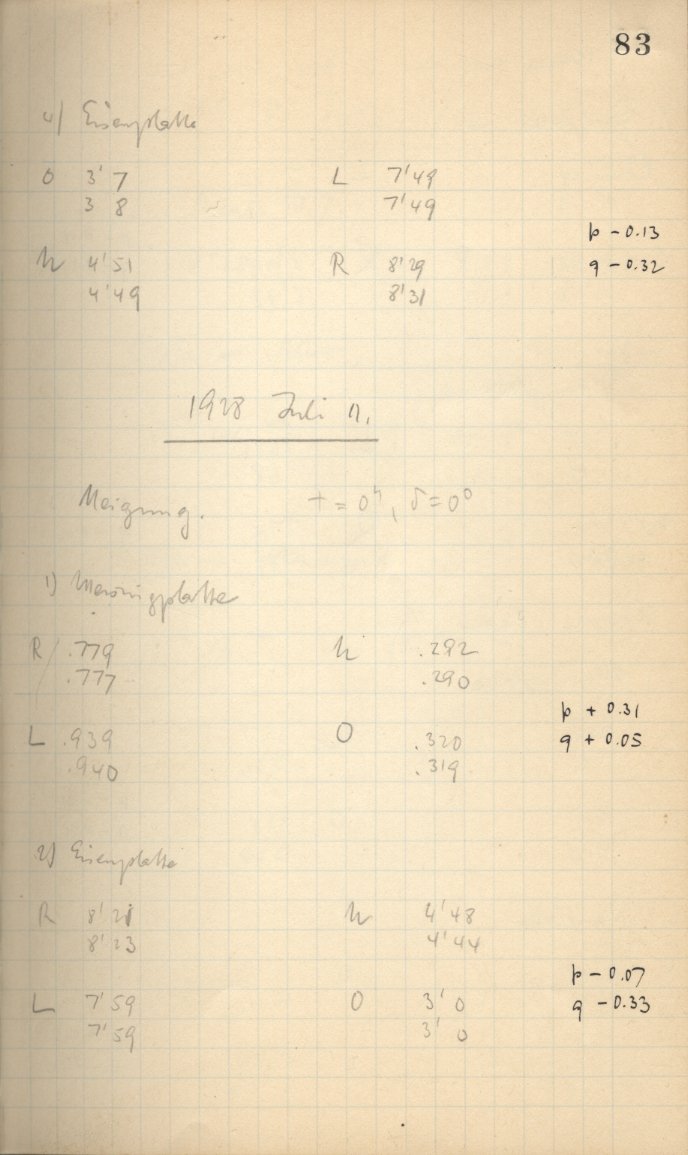 83
4) Eisenplatte
O 3' 7 L 7'49
3 8 7'49
p - 0.13
U 4'51 R 8'29 q - 0.32
4'49 8'31
1928 Juli 11.
Neigung. t = 0ʰ, δ = 0°
1) Messingplatte
R .779 U .292
.777 .290
p + 0.31
L .939 O .320 q + 0.05
.940 .319
2) Eisenplatte
R 8' 21 U 4'48
8' 23 4'44
p - 0.07
L 7'59 O 3' 0 q - 0.33
7'59 3' 0